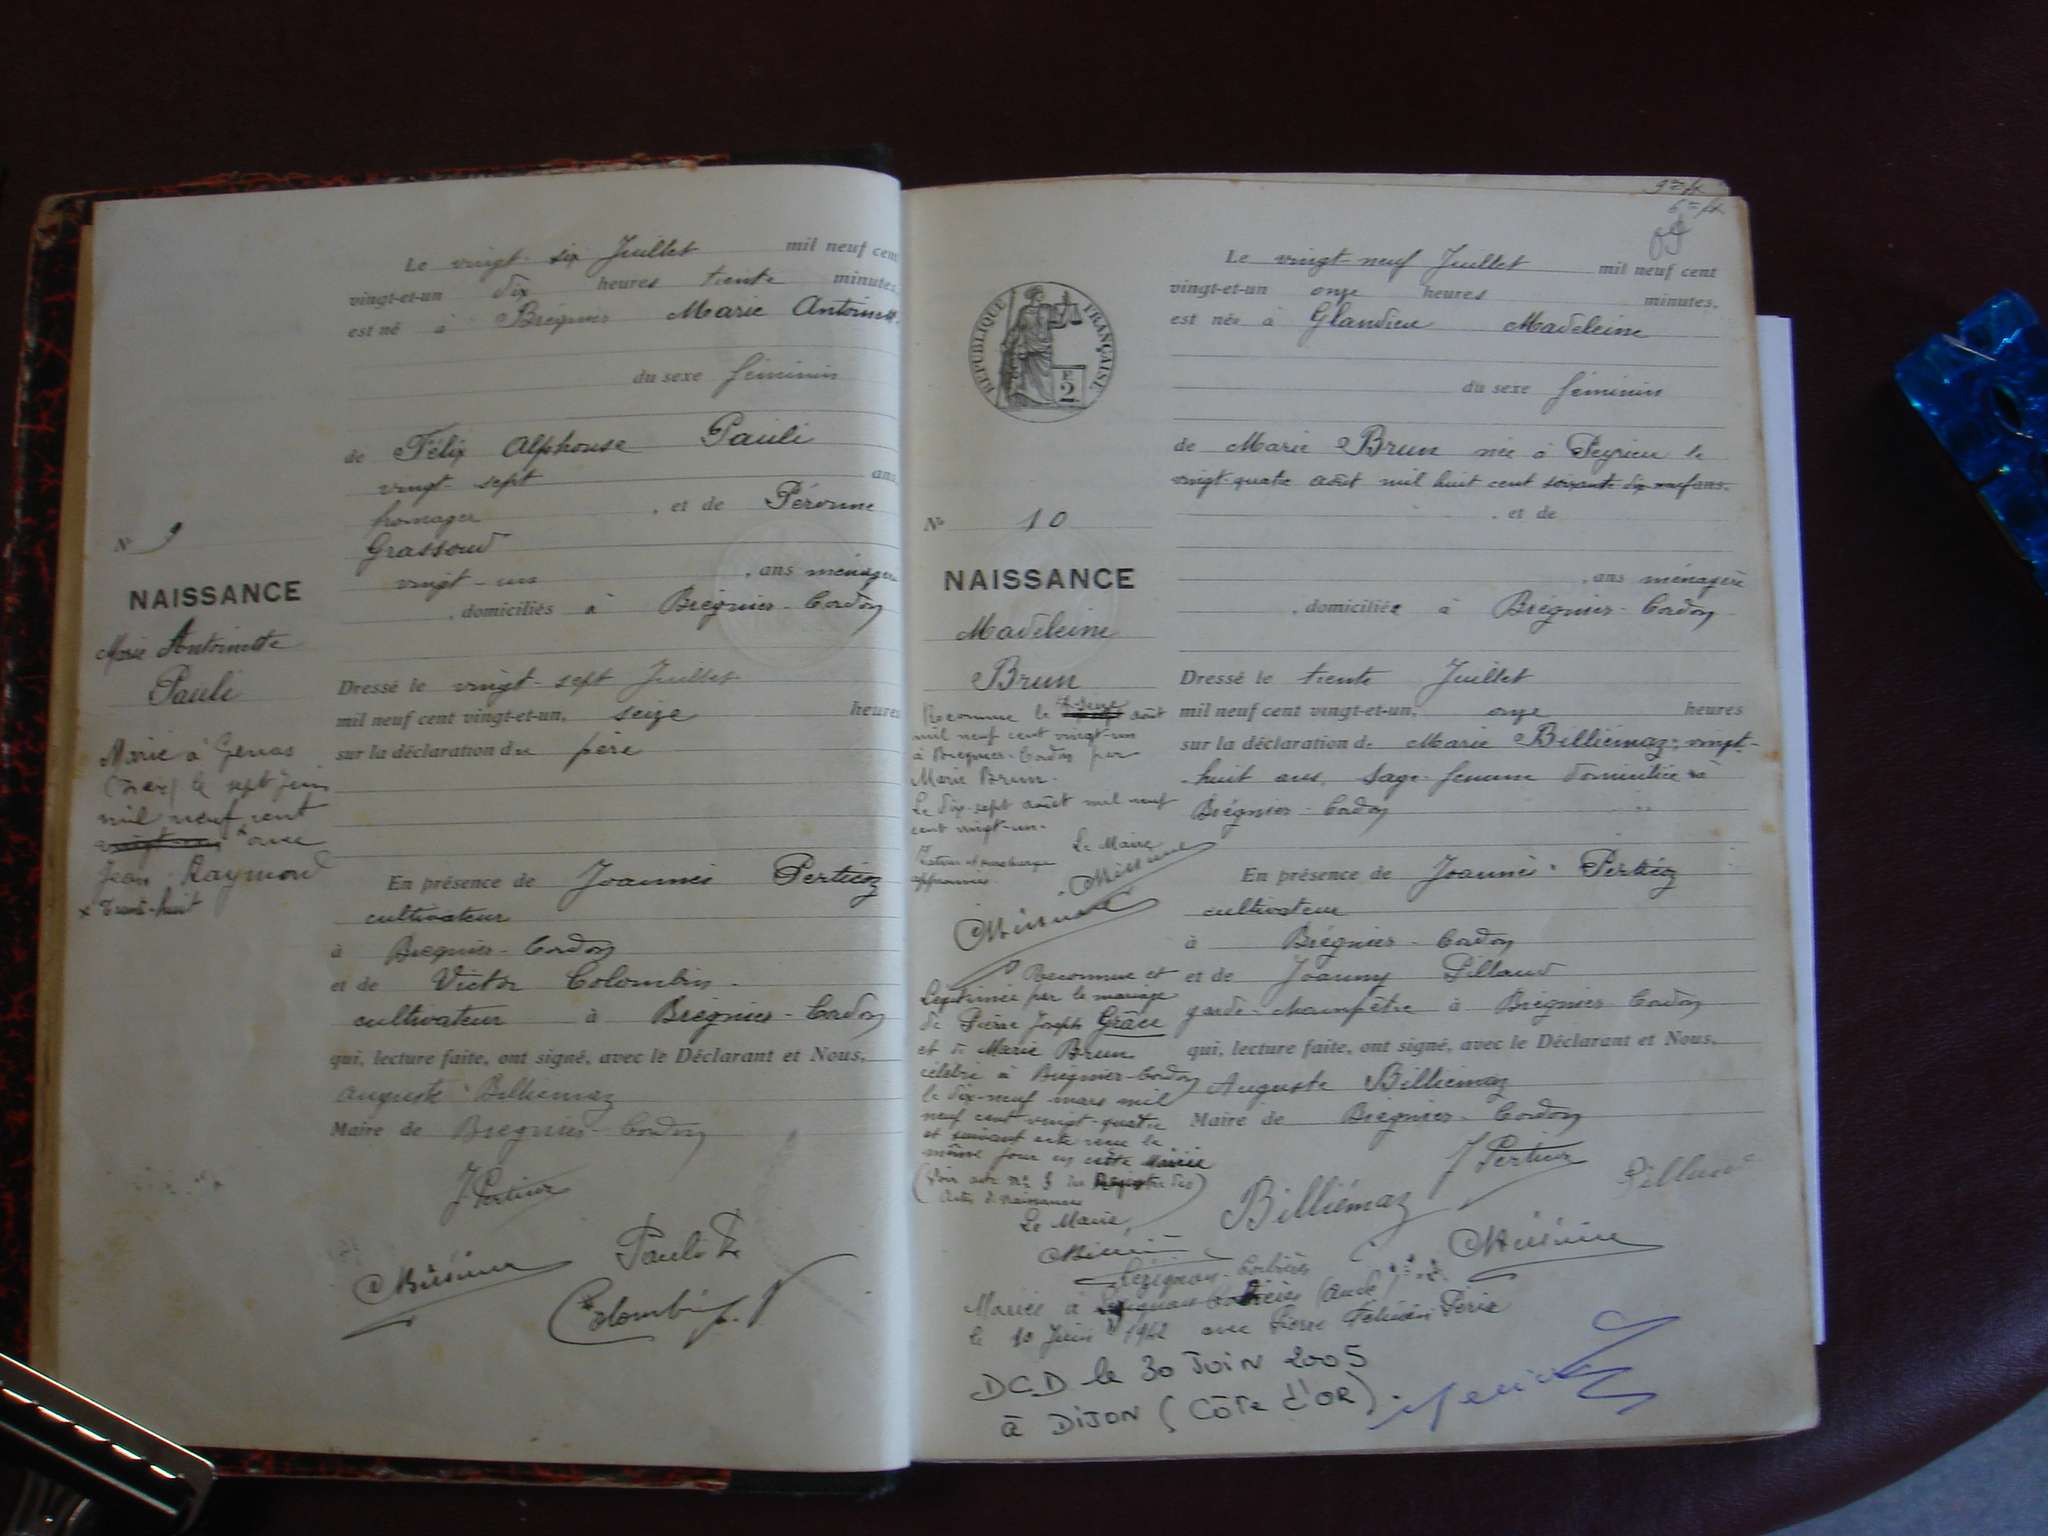 Le vingt-six Juillet mil neuf cent
vingt-et-un dix heures trente minutes,
est né à Brégnier Marie Antoinett
du sexe féminin
de Félix Alphonse Pauli
vingt-sept ans,
fromager , et de Péronne
Grassoud
vingt-un , ans ménagère
, domiciliés à Brégnier-Cordon
N° 9
NAISSANCE
Marie Antoinette
Pauli
Dressé le vingt-sept Juillet
mil neuf cent vingt-et-un, seize heures
sur la déclaration du père
Mariée à Genas
le sept Juin
mil neuf cent
vingt-un x avec
Jean Raymond
x Trente-huit
En présence de Joannès Perticoz
cultivateur
à Brégnier-Cordon
et de Victor Colombin
cultivateur à Brégnier-Cordon
qui, lecture faite, ont signé, avec le Déclarant et Nous,
Auguste Billiemaz
Maire de Brégnier-Cordon
J Perticoz
Pauli F
Colombin
9
6
Le vingt-neuf Juillet mil neuf cent
vingt-et-un onze heures minutes,
est née à Glandieu Madeleine
du sexe féminin
de Marie Brun née à Peyrieu le
vingt-quatre août mil huit cent soixante dix neuf ans.
. et de
, ans ménagère
, domiciliée à Brégnier-Cordon
RÉPUBLIQUE FRANÇAISE
2
N° 10
NAISSANCE
Madeleine
Brun
Dressé le trente Juillet
mil neuf cent vingt-et-un, onze heures
sur la déclaration de Marie Billiémaz, vingt-
huit ans, sage-femme domiciliée à
Brégnier-Cordon
Reconnue le août
mil neuf cent vingt-un
à Brégnier-Cordon par
Marie Brun.
Le dix-sept août mil neuf
cent vingt-un.
Le Maire
Rature et surcharge
approuvées.
En présence de Joannès Perticoz
cultivateur
à Brégnier-Cordon
et de Joanny Pillaud
garde-champêtre à Brégnier-Cordon
qui, lecture faite, ont signé, avec le Déclarant et Nous,
Auguste Billiemaz
Maire de Brégnier-Cordon
Reconnue et
Légitimée par le mariage
de Pierre Joseph Grâce
et de Marie Brun
célébré à Brégnier-Cordon
le dix-neuf mars mil
neuf cent vingt-quatre
et suivant acte reçu le
même jour en cette Mairie
(Voir acte n° 3 du Registre des
Actes de Naissances)
Le Maire,
J Perticoz
Pillaud
Billiémaz
Lézignan-Corbières
Mariée à Lézignan Corbières (Aude)
le 10 Juin 1942 avec Pierre Félicien Périé
DCD le 30 JUIN 2005
à DIJON (CÔTE d'OR).